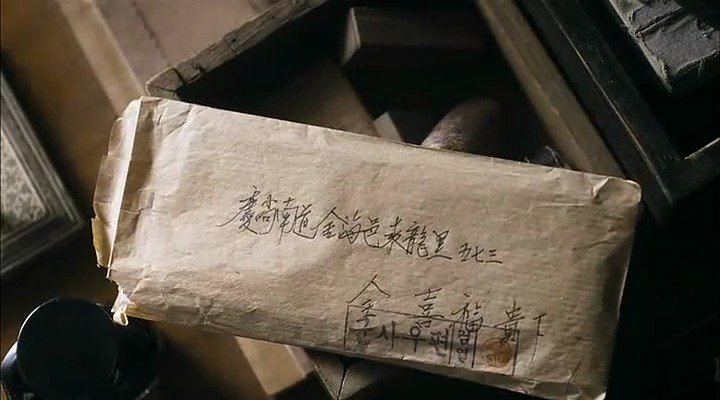 慶尙南道 金海邑 東龍里 五七三
金 喜 福 貴下
군사우편